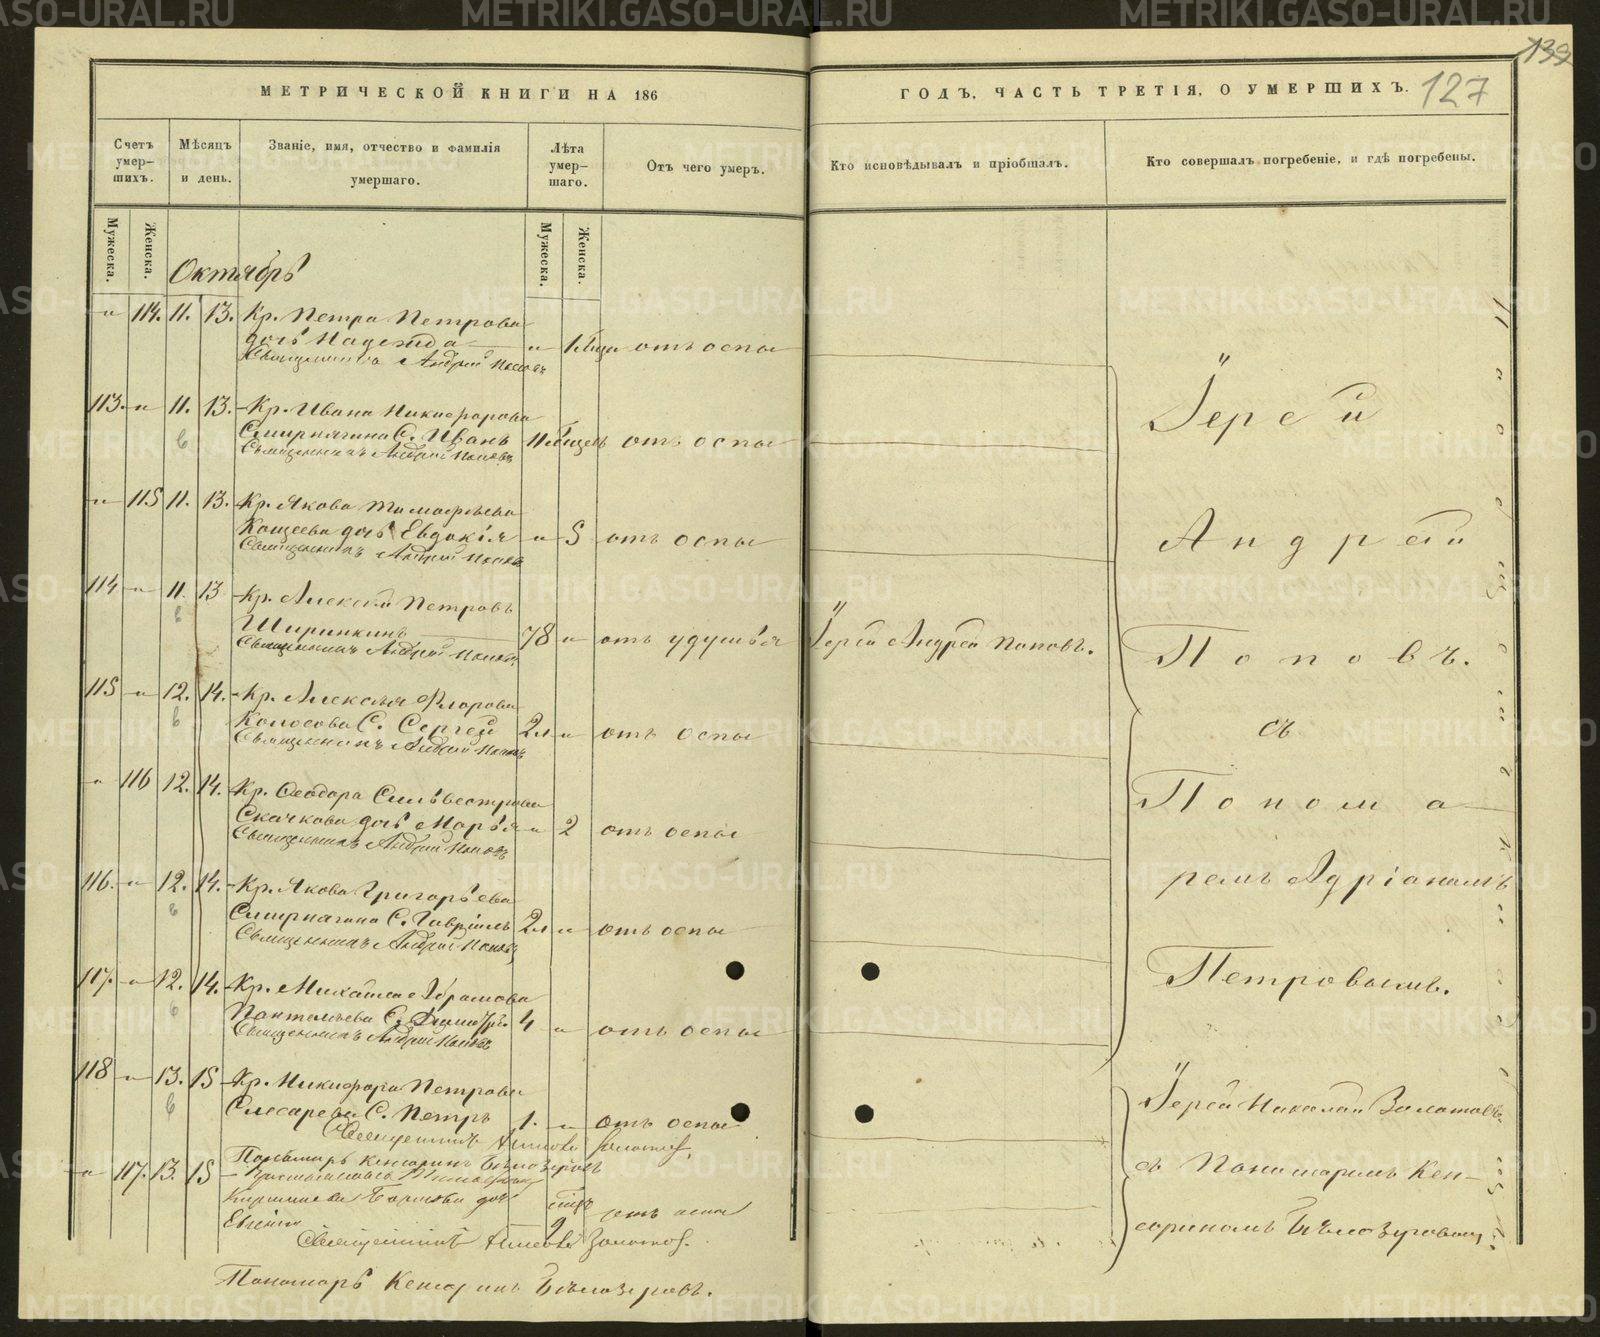 139
127
МЕТРИЧЕСКОЙ КНИГИ НА 186
ГОДЪ, ЧАСТЬ ТРЕТІЯ, О УМЕРШИХЪ.
Счетъ умер-шихъ.
Мѣсяцъ и день.
Званіе, имя, отчество и фамилія умершаго.
Лѣта умер-шаго.
Отъ чего умеръ.
Кто исповѣдывалъ и пріобщалъ.
Кто совершалъ погребеніе, и гдѣ погребены.
Мужеска.
Женска.
Мужеска.
Женска.
Октябрь
„ 114. 11. 13. Кр. Петра Петрова
дочь Надежда „ от оспы
Священникъ Андрей Поповъ
113. „ 11. 13. Кр. Ивана Никифорова
Смирнягина С. Иванъ 11 мѣсяц. отъ оспы
Священникъ Андрей Поповъ
„ 115 11. 13. Кр. Якова Тимофѣева
Кощеева дочь Евдокія „ 5 отъ оспы
Священникъ Андрей Поповъ
114 „ 11. 13 Кр. Алексѣй Петровъ
Ширинкинъ 78 „ отъ удушья Іерей Андрей Поповъ.
Священникъ Андрей Поповъ
115 „ 12. 14. Кр. Алексѣя Флорова
Колосова С. Сергѣй 2 „ отъ оспы
Священникъ Андрей Поповъ
„ 116 12. 14. Кр. Ѳеодора Сильвестрова
Скачкова дочь Марья „ 2 отъ оспы
Священникъ Андрей Поповъ
116. „ 12. 14. Кр. Якова Григорьева
Смирнягина С. Гавріилъ 2 „ отъ оспы
Священникъ Андрей Поповъ
117. „ 12. 14. Кр. Михаила Абрамова
Пантелѣева С. Димитрій 4 „ отъ оспы
Священникъ Андрей Поповъ
118 „ 13. 15 Кр. Никифора Петрова
Слесарева С. Петръ 1. „ отъ оспы
Священникъ Золотовъ.
Пономарь Кенсоринъ Бѣлозеровъ
„ 117. 13. 15
дочь
Евгенія 9 отъ оспы
Священникъ Золотов.
Пономарь Кенсоринъ Бѣлозеровъ.
Іерей
Андрей
Поповъ.
съ
Понома-
ремъ Адріаномъ
Петровымъ.
Іерей Николай Золотовъ
съ Пономаремъ Кен-
сориномъ Бѣлозеровым
METRIKI.GASO-URAL.RU